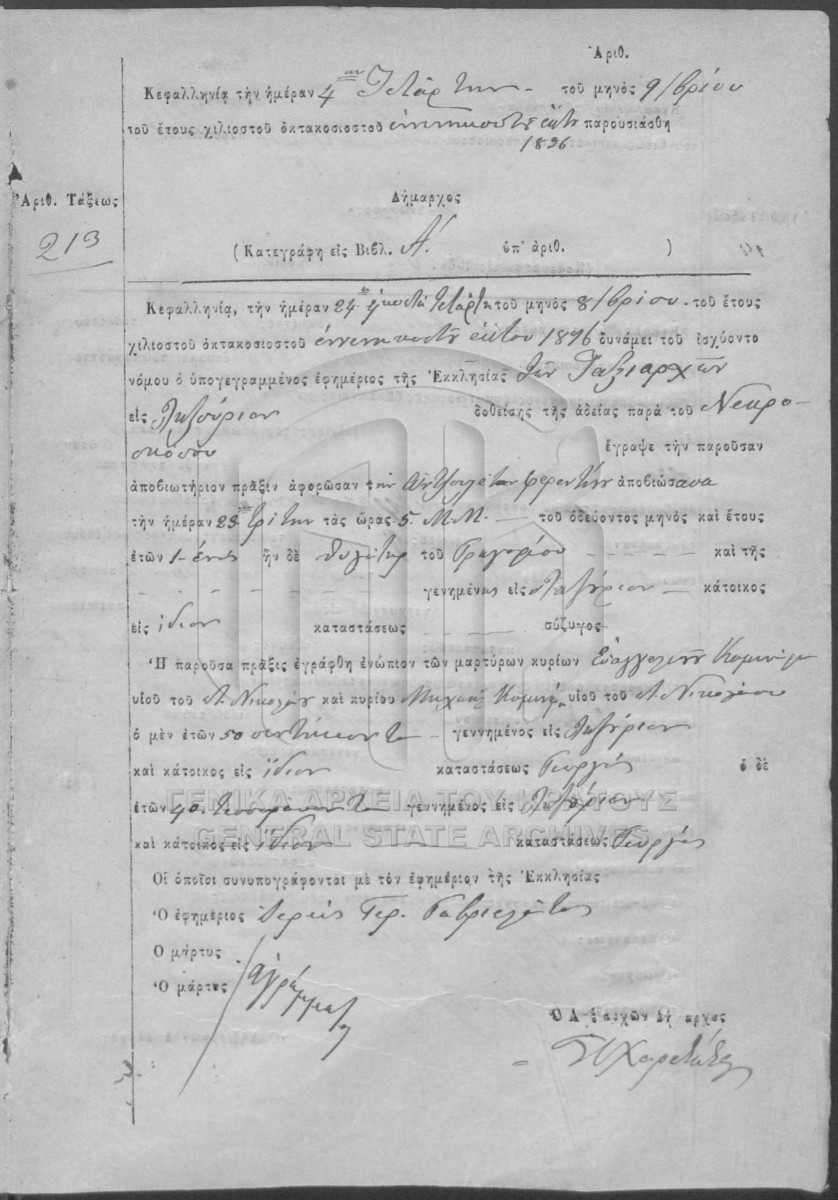 Ἀριθ.
Κεφαλληνίᾳ τὴν ἡμέραν 4ην Τετάρτην τοῦ μηνὸς 9/βρίου
τοῦ ἔτους χιλιοστοῦ ὀκτακοσιοστοῦ ἐννενηκοστοῦ ἕκτου παρουσιάσθη
1896
Ἀριθ. Τάξεως
Δήμαρχος
213
(Κατεγράφη εἰς Βιβλ. Α΄. ὑπ' ἀριθ. )
Κεφαλληνίᾳ, τὴν ἡμέραν 24 τοῦ μηνὸς 8/βρίου τοῦ ἔτους
χιλιοστοῦ ὀκτακοσιοστοῦ ἐννενηκοστοῦ ἕκτου 1896 δυνάμει τοῦ ἰσχύοντο
νόμου ὁ ὑπογεγραμμένος ἐφημέριος τῆς Ἐκκλησίας τῶν Ταξιαρχῶν
εἰς Ληξούριον δοθείσης τῆς ἀδείας παρὰ τοῦ Νεκρο-
σκόπου ἔγραψε τὴν παροῦσαν
ἀποβιωτήριον πρᾶξιν ἀφορῶσαν τὴν ἀποβιώσασα
τὴν ἡμέραν 23 Τρίτην τὰς ὥρας 5. Μ.Μ. τοῦ ὁδεύοντος μηνὸς καὶ ἔτους
ἐτῶν 1 ἑνός ἦν δὲ θυγάτηρ τοῦ Γρηγορίου καὶ τῆς
γενημένως εἰς Ληξούριον κάτοικος
εἰς ἴδιον καταστάσεως σύζυγος
Ἡ παροῦσα πρᾶξις ἐγράφθη ἐνώπιον τῶν μαρτύρων κυρίων Εὐαγγελινὸς
υἱοῦ τοῦ Νικολάου καὶ κυρίου Μιχαὴλ υἱοῦ τοῦ Νικολάου
ὁ μὲν ἐτῶν 50 πεντήκοντα γεννημένος εἰς Ληξούριον
καὶ κάτοικος εἰς ἴδιον καταστάσεως Γεωργός ὁ δὲ
ἐτῶν 40 τεσσαράκοντα γεννημένος εἰς Ληξούριον
ΓΕΝΙΚΑ ΑΡΧΕΙΑ ΤΟΥ ΚΡΑΤΟΥΣ
GENERAL STATE ARCHIVES
καὶ κάτοικος εἰς ἴδιον καταστάσεως Γεωργός
Οἱ ὁποῖοι συνυπογράφονται μὲ τὸν ἐφημέριον τῆς Ἐκκλησίας
Ὁ ἐφημέριος Ἱερεὺς Γερ. Γαβριελάτος
Ὁ μάρτυς
Ὁ μάρτυς ἀγράμματοι
Ὁ Ληξιαρχῶν Δήμαρχος